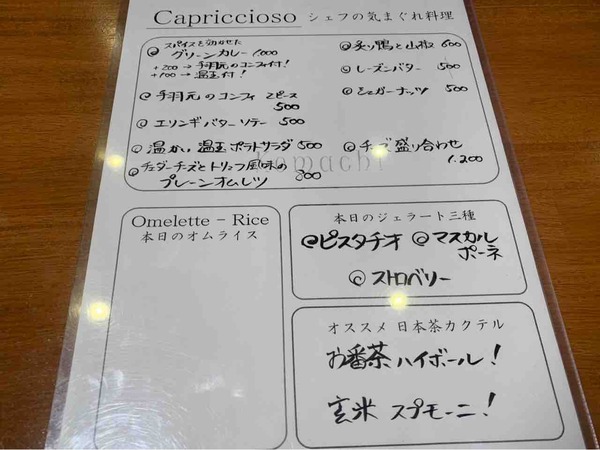 Capriccioso シェフの気まぐれ料理
スパイスを効かせた
グリーンカレー 1000
+200 → 手羽元のコンフィ付!
+100 → 温玉付!
手羽元のコンフィ 2ピース
500
エリンギバターソテー 500
温かい温玉ポテトサラダ 500
チェダーチーズとトリュフ風味の
プレーンオムレツ 800
炙り鴨と山椒 600
レーズンバター 500
シュガーナッツ 500
チーズ盛り合わせ
1.200
Omelette - Rice
本日のオムライス
本日のジェラート三種
ピスタチオ マスカル
ポーネ
ストロベリー
オススメ 日本茶カクテル
お番茶ハイボール!
玄米 スプモーニ!